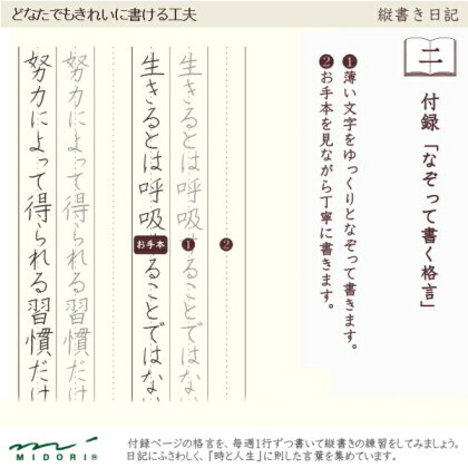 どなたでもきれいに書ける工夫
縦書き日記
二
付録「なぞって書く格言」
❶薄い文字をゆっくりとなぞって書きます。
❷お手本を見ながら丁寧に書きます。
❷
❶
お手本
生きるとは呼吸することではない
生きるとは呼吸することではない
努力によって得られる習慣だけ
努力によって得られる習慣だけ
MIDORI®
付録ページの格言を、毎週1行ずつ書いて縦書きの練習をしてみましょう。
日記にふさわしく、「時と人生」に則した言葉を集めています。